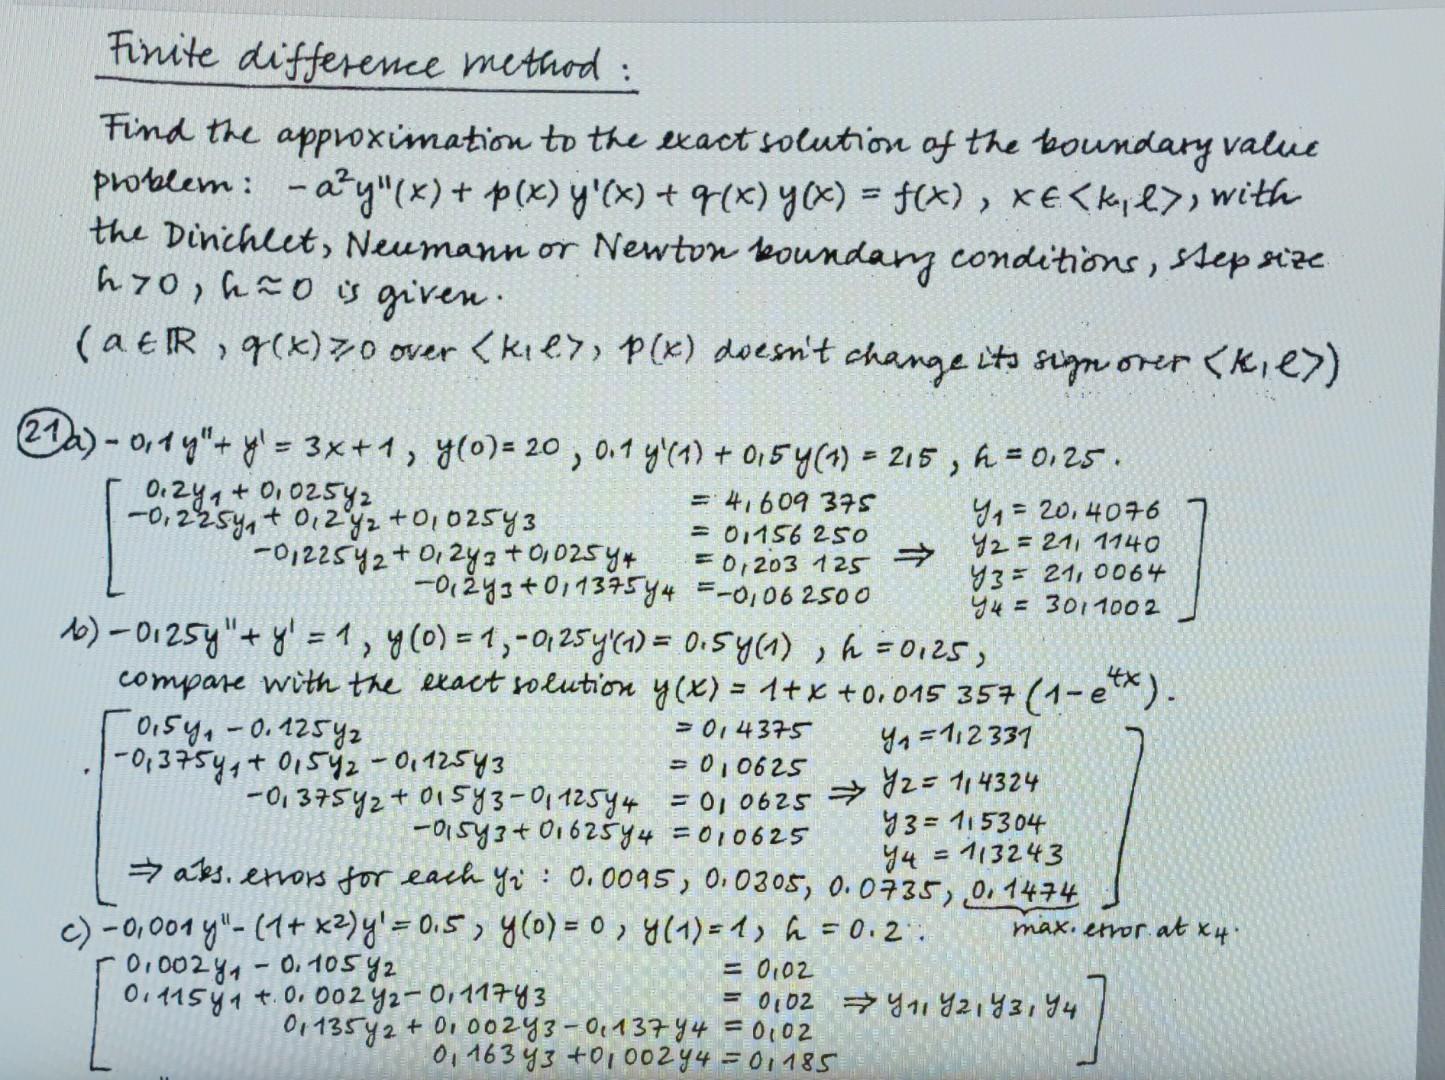 Finite difference method :
Find the approximation to the exact solution of the boundary value
problem : -a²y"(x) + p(x) y'(x) + q(x) y(x) = f(x) , x ∈ <k,l>, with
the Dirichlet, Neumann or Newton boundary conditions, step size
h > 0 , h ≈ 0 is given.
(a ∈ ℝ , q(x) ⩾ 0 over <k,l>, p(x) doesn't change its sign over <k,l>)
21 a) - 0,1y" + y' = 3x+1 , y(0) = 20 , 0.1 y'(1) + 0,5y(1) = 2,5 , h = 0.25 .
0.2y₁ + 0,025y₂ = 4,609 375 y₁ = 20,4076
-0,225y₁ + 0,2y₂ + 0,025y₃ = 0,156 250 y₂ = 21,1140
-0,225y₂ + 0,2y₃ + 0,025y₄ = 0,203 125 ⇒ y₃ = 21,0064
-0,2y₃ + 0,1375y₄ = -0,062500 y₄ = 30,1002
b) - 0,25y" + y' = 1 , y(0) = 1, -0,25y'(1) = 0.5y(1) , h = 0,25 ,
compare with the exact solution y(x) = 1+x+0.015 357 (1-e⁴ˣ).
0,5y₁ - 0.125y₂ = 0,4375 y₁ = 1,2331
-0,375y₁ + 0,5y₂ - 0,125y₃ = 0,0625 ⇒ y₂ = 1,4324
-0,375y₂ + 0,5y₃ - 0,125y₄ = 0,0625 y₃ = 1,5304
-0,5y₃ + 0,625y₄ = 0,0625 y₄ = 1,3243
⇒ abs. errors for each yᵢ : 0.0095, 0.0305, 0.0735, 0.1474
max. error at x₄.
c) -0,001 y" - (1+x²)y' = 0.5 , y(0) = 0 , y(1) = 1, h = 0.2 .
0,002y₁ - 0.105y₂ = 0,02
0.115y₁ + 0.002y₂ - 0,117y₃ = 0,02 ⇒ y₁, y₂, y₃, y₄
0,135y₂ + 0,002y₃ - 0,137y₄ = 0,02
0,163y₃ + 0,002y₄ = 0,185